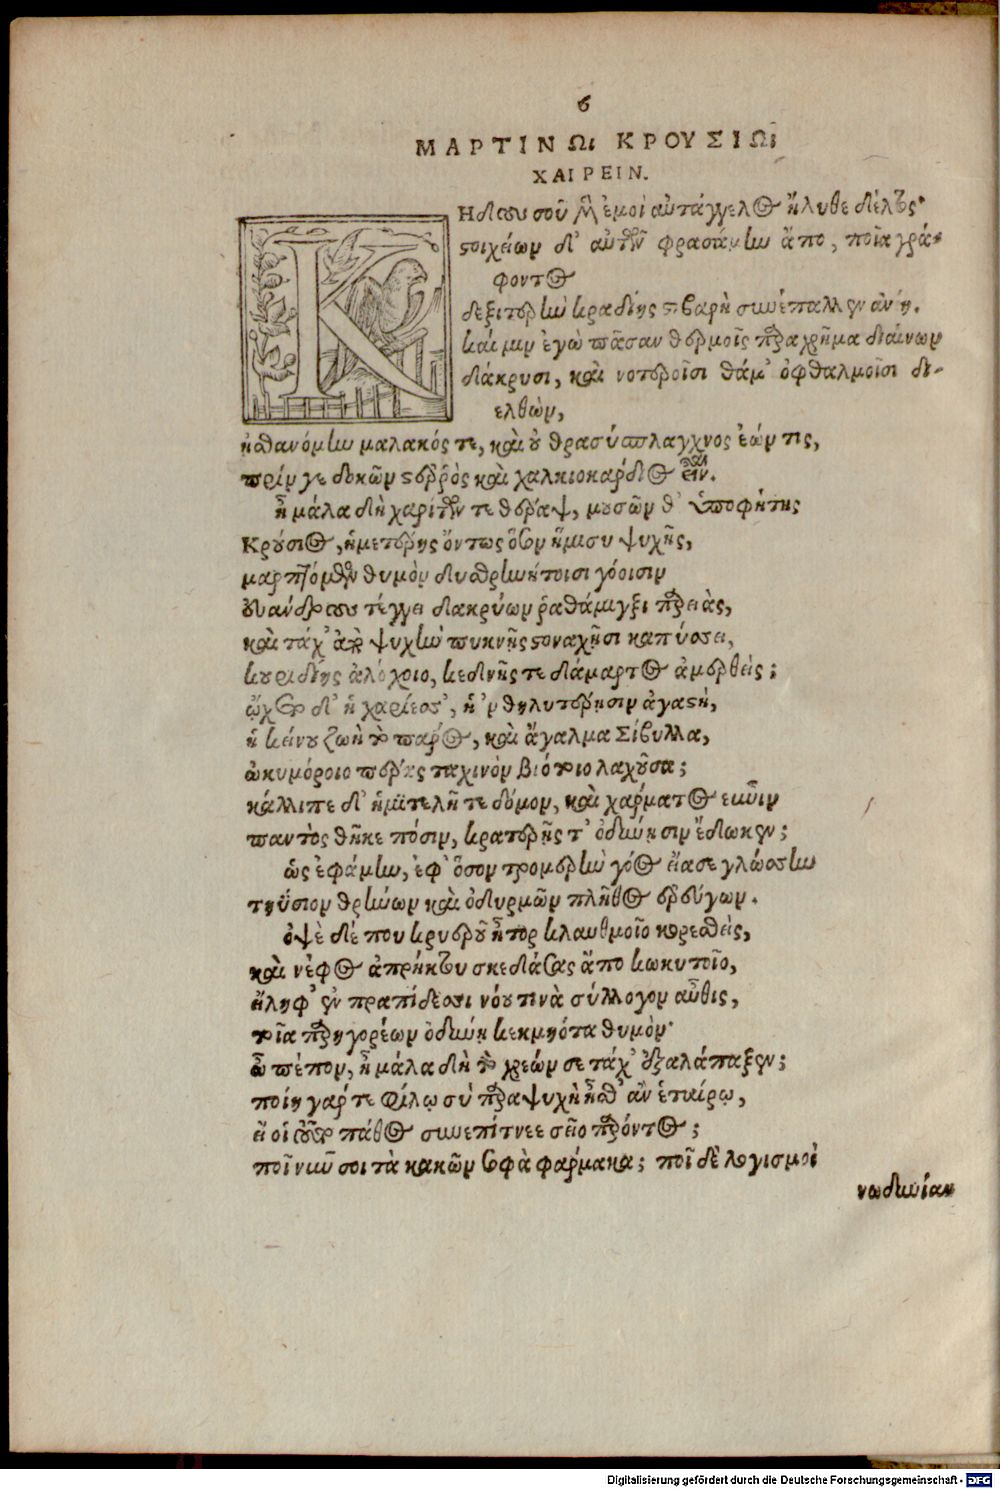 6
ΜΑΡΤΙΝΩι ΚΡΟΥΣΙΩι
ΧΑΙΡΕΙΝ.
ΚΗδους σοῦ ἐμοὶ αὐτάγγελος ἤλυθε δέλτος·
στοιχείων δ' αὐτῶν φρασάμην ἄπο, ποῖα γρά-
φοντος
δεξιτερὴν κραδίης στιβαρὴ συνέπαλλεν ἀνίη.
καί μιν ἐγὼ πᾶσαν θερμοῖς παραχρῆμα διαίνων
δάκρυσι, καὶ νοτεροῖσι θάμ' ὀφθαλμοῖσι δι-
ελθὼν,
ᾐσθανόμην μαλακός τε, καὶ οὐ θρασύσπλαγχνος ἐών τις,
πρίν γε δοκῶν στεῤῥὸς καὶ χαλκιοκάρδιος εἶναι.
ἦ μάλα δὴ χαρίτων τε θεράψ, μουσῶν θ' ὑποφήτης
Κρούσιος, ἡμετέρης ὄντως ὅπερ ἥμισυ ψυχῆς,
μαρπτόμενον θυμὸν δυσθρηνήτοισι γόοισιν
οὐάνδρου τέγγει δακρύων ῥαθάμιγξι παρειὰς,
καὶ τάχ' ἄρ ψυχὴν πυκνῇς στοναχῇσι καπύσσει,
κουριδίης ἀλόχοιο, κεδνῆς τε δάμαρτος ἀμερθείς;
ᾤχετο δ' ἡ χαρίεσσ', ἡ 'ν θηλυτέρῃσιν ἀγαστὴ,
ἡ κείνου ζωὴ τὸ πάρος, καὶ ἄγαλμα Σίβυλλα,
ὠκυμόροιο πείρης ταχινὸν βιότοιο λαχοῦσα;
κάλλιπε δ' ἡμιτελῆ τε δόμον, καὶ χάρματος εὖνιν
παντὸς θῆκε πόσιν, κρατερῇς τ' ὀδύνῃσιν ἔδωκεν;
ὡς ἐφάμην, ἐφ' ὅσον τρομερὴν γόος εἴασε γλώσσην
τηΰσιον θρήνων καὶ ὀδυρμῶν πλῆθος ἐρεύγων.
ὀψὲ δέ που κρυερῷ ἦτορ κλαυθμοῖο κορεσθεὶς,
καὶ νέφος ἀπρήκτου σκεδάσας ἄπο κωκυτοῖο,
εἴληφ' ἐν πραπίδεσσι νόου τινὰ σύλλογον αὖθις,
τοῖα παρηγορέων ὀδύνῃ κεκμηότα θυμόν·
ὦ πέπον, ἦ μάλα δὴ τὸ χρεών σε τάχ' ἐξαλάπαξεν;
ποίη γάρ τε φίλῳ σὺ παρὰ ψυχὴ ἦσθ' ἂν ἑταίρῳ,
εἴ οἱ πάθος συνεπίτνεε σεῖο παρόντος;
ποῖ νῦν σοι τὰ κακῶν σοφὰ φάρμακα; ποῖ δὲ λογισμοὶ
νωδυνίαν
Digitalisierung gefördert durch die Deutsche Forschungsgemeinschaft - DFG